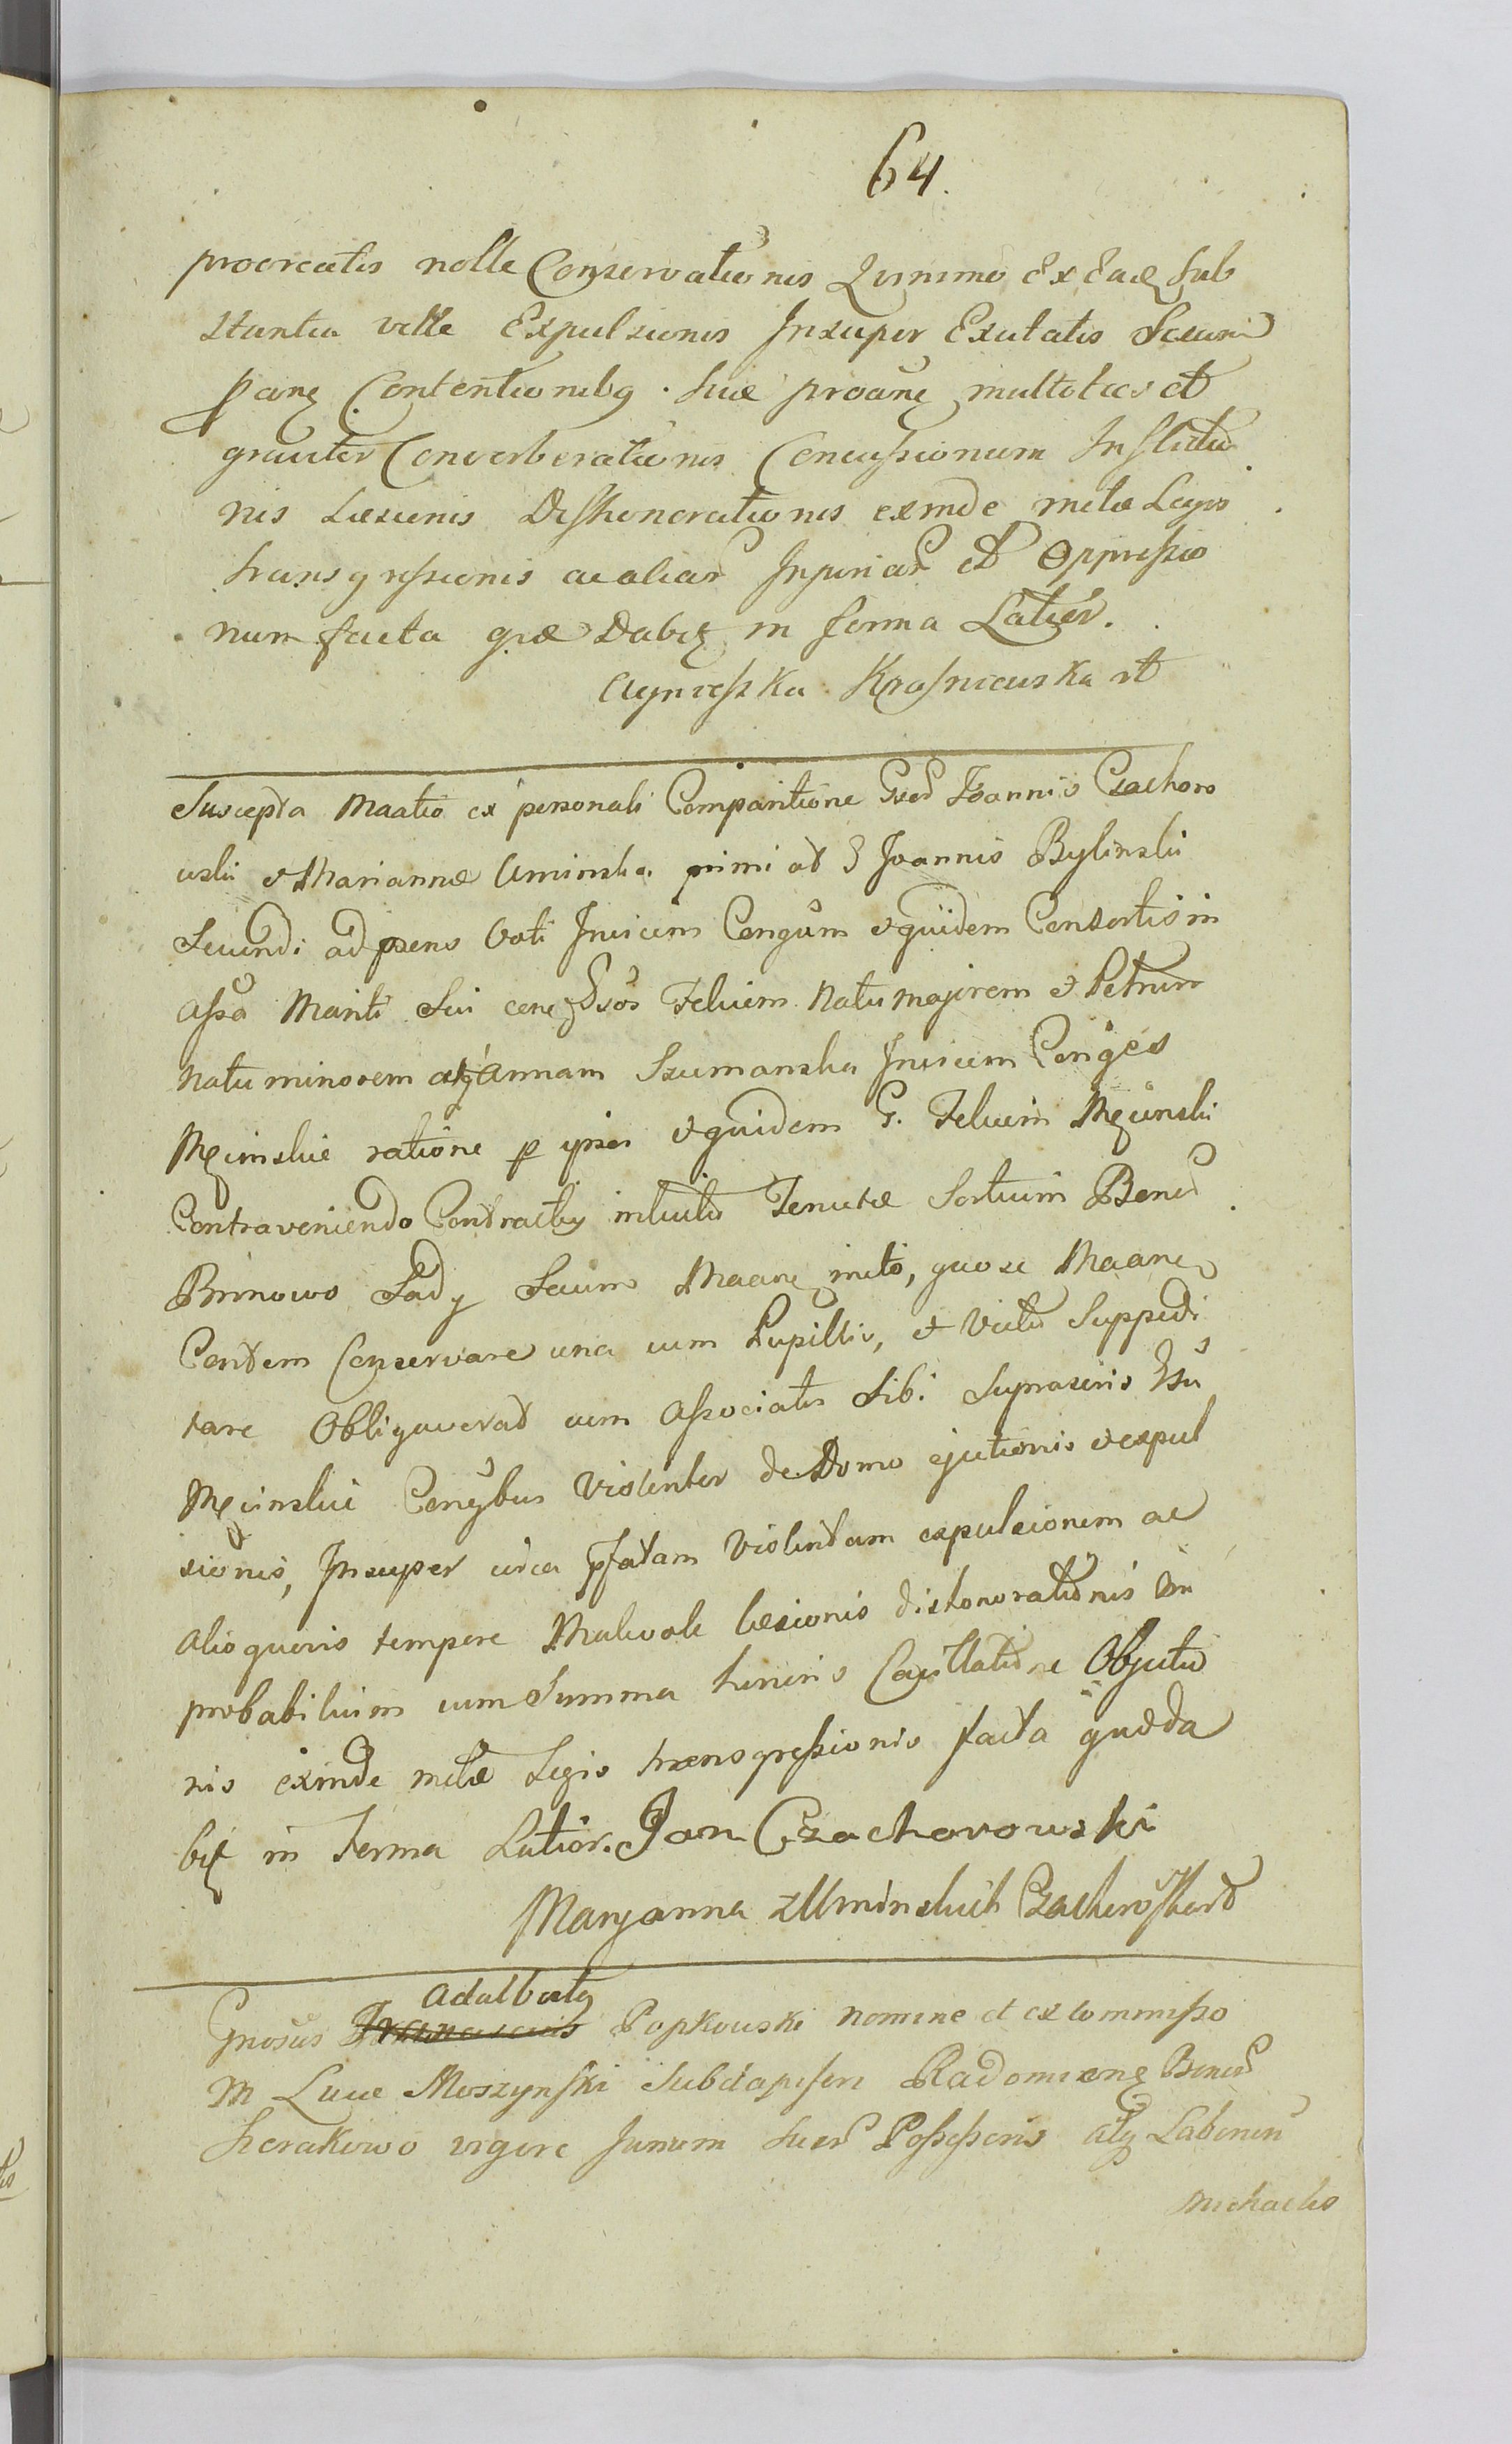 64.
procreatis nolle Conservationis Quinimo Ex Eadē Sub
stantia velle Expulsionis Insuper Exutatis Secum
p ane Contentionibq. suae proane multoties et
graviter Converberationis Concussionum Institutio
nis Laesionis Dishonorationis exinde metae Legis
transgressionis ac aliar Injuriar et Oppressio
num facta qae Dabit in forma Latior.
Agnieszka Krasniewska
Suscepta Maatio ex personali Comparitione Gser Joannis Czachoro
wski et Mariannae Uminska primi at G Joannis Bylinski
Secundi ad psens Voti Invicem Congum et quidem Consortis in
assa Mariti Sui cone Gsos Felicem Natu majorem et Petrum
Natu minorem atq Annam Szumanska Invicem Conges
Męcinskie ratione p ipsos et quidem G. Felicem Męcinski
Contraveniendo Contractui intuitu Tenutae Sortium Bonor
Brinowo Lady Secum Maane inito, quo se Maane
Contem Conservare una cum Pupillis, et Victu Suppedi
tare Obligaverat cum Associatis Sibi Suprascris Gsis
Męcinskie Congibus Violenter de Domo ejectionis et expul
sionis, Insuper circa pfatam Violentam expulsionem ac
alio quovis tempore Malevole laesionis dishonorationis im
probabilium cum Summa honoris Cavillatione Objectio
nis exinde metae Legis transgressionis facta quae da
bit in Forma Latior. Jan Czachorowski
Maryanna z Uminskich Czachorowska
Adalbertq
Gnosus Popkowski nomine et ex commisso
M Lucae Moszynski Subdapiferi Radomiene Bonor
Serakowo vigore Jurium suor Possessoris atq Laboriu
Michaelis